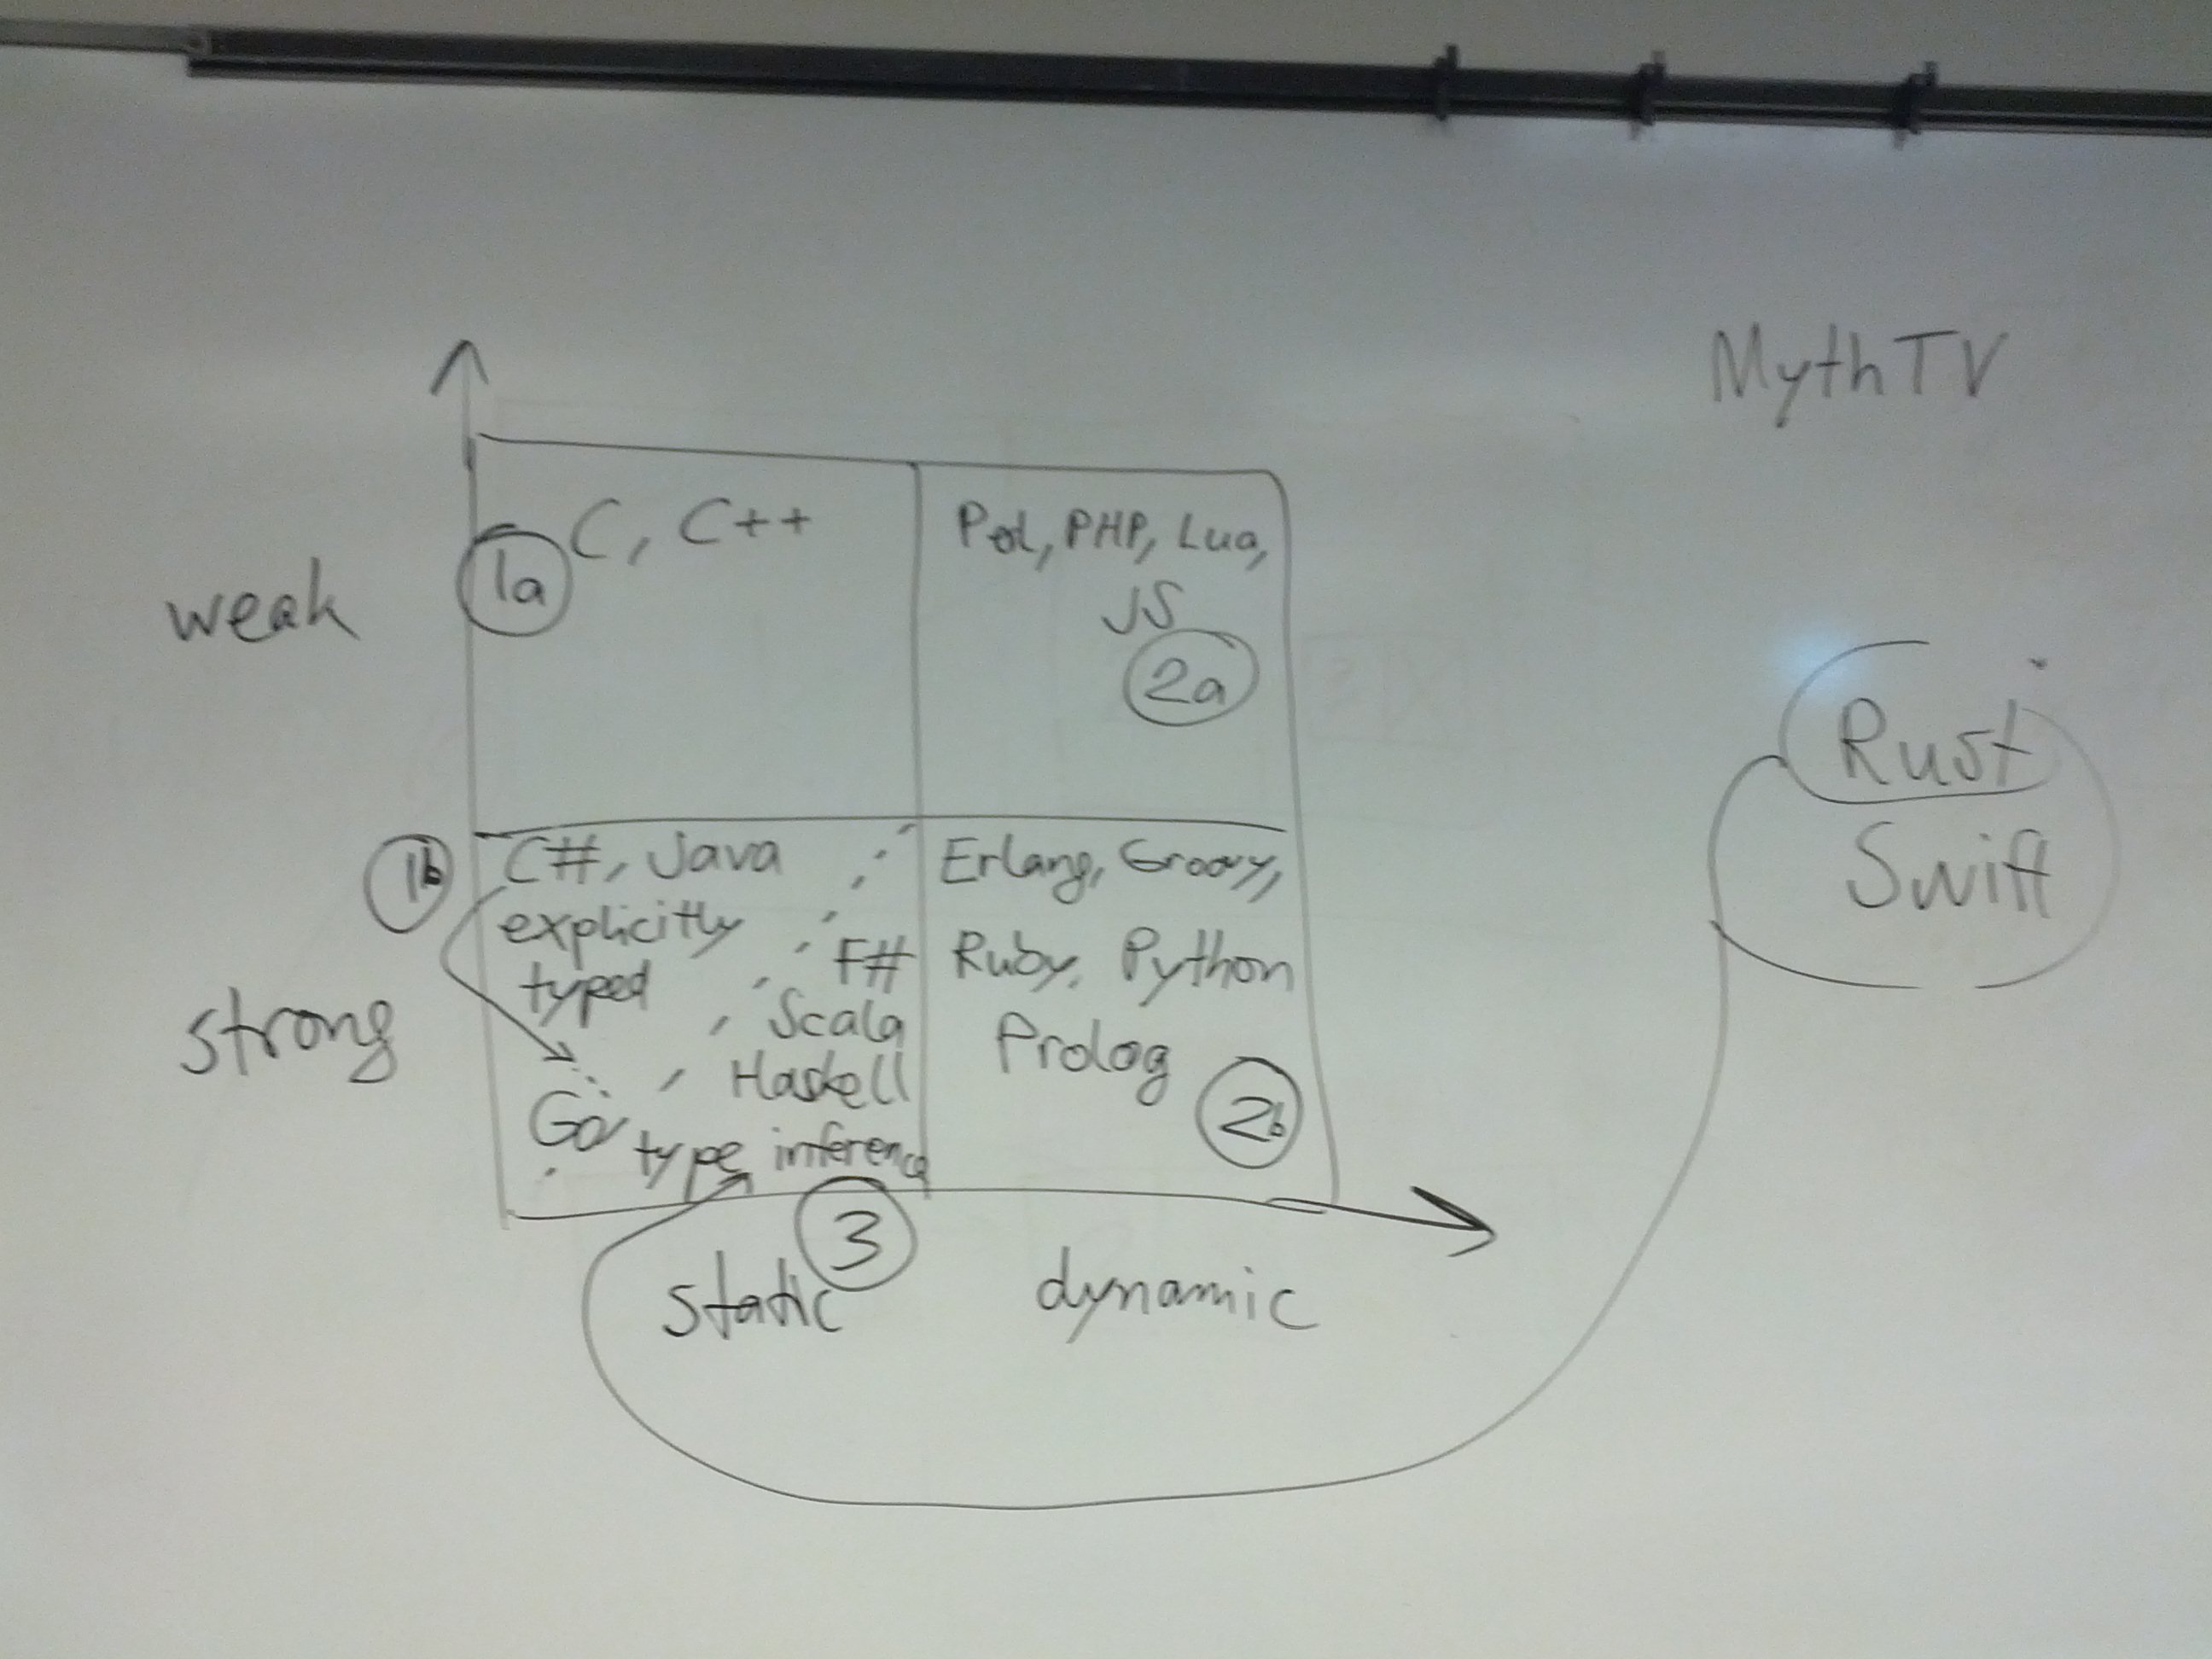 MythTV
C, C++
1a
Perl, PHP, Lua,
JS
2a
weak
Rust
Swift
1b
C#, Java
explicitly
typed
F#
Scala
Haskell
Go
type inference
3
Erlang, Groovy,
Ruby, Python
Prolog
2b
strong
static
dynamic